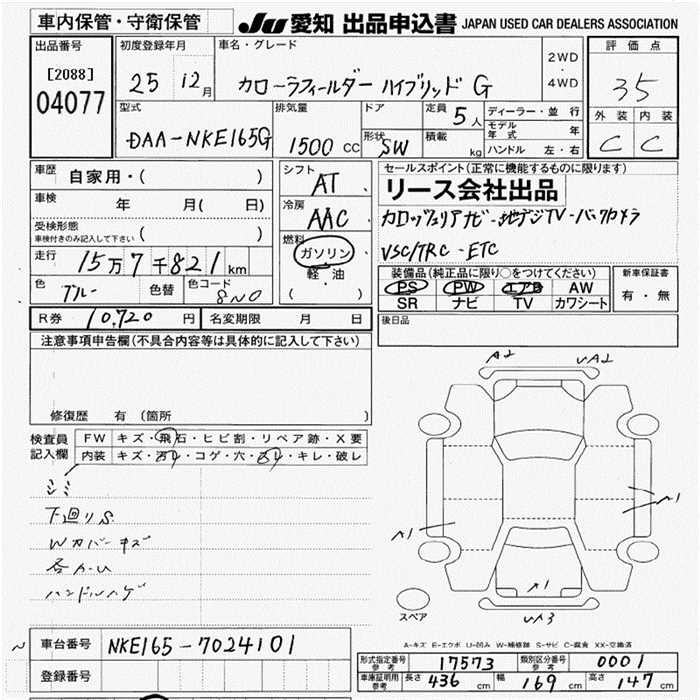 車内保管・守衛保管
JU 愛知 出品申込書 JAPAN USED CAR DEALERS ASSOCIATION
出品番号
[2088]
04077
初度登録年月
25 12月
車名・グレード
カローラフィールダー ハイブリッド G
2WD
・
4WD
評価点
35
外装 内装
C C
型式
DAA-NKE165G
排気量
1500 CC
ドア
形状 SW
定員 5人
積載 kg
ディーラー・並行
モデル年式 年
ハンドル 左・右
車歴 自家用・( )
車検 年 月( 日)
受検形態
車検付きのみ記入して下さい ( )
走行 15万7千821km
色 ブルー 色替 色コード 8N0
R券 10,720 円 名変期限 月 日
シフト
AT
冷房
AAC
燃料
ガソリン
・
軽・油
( )
セールスポイント(正常に機能するものに限ります)
リース会社出品
カロッツェリアナビ-地デジTV-バックカメラ
VSC/TRC-ETC
装備品(純正品に限り○をつけてください)
PS PW エアB AW
SR ナビ TV カワシート
新車保証書
有・無
後日品
注意事項申告欄(不具合内容等は具体的に記入して下さい)
修復歴 有 (箇所
検査員記入欄
FW キズ・飛石・ヒビ割・リペア跡・X要
内装 キズ・汚レ・コゲ・穴・スレ・キレ・破レ
シミ
下廻りS
Wカバーキズ
各A・U
ハンドルハゲ
A2 UA2
A1
A1
A1
UA3
スペア
A-キズ E-エクボ U-凹み W-補修跡 S-サビ C-腐食 XX-交換済
車台番号 NKE165-7024101
登録番号
形式指定番号 参考 17573 類別区分番号 参考 0001
車庫証明用 参考 長さ 436 cm 幅 169 cm 高さ 147 cm